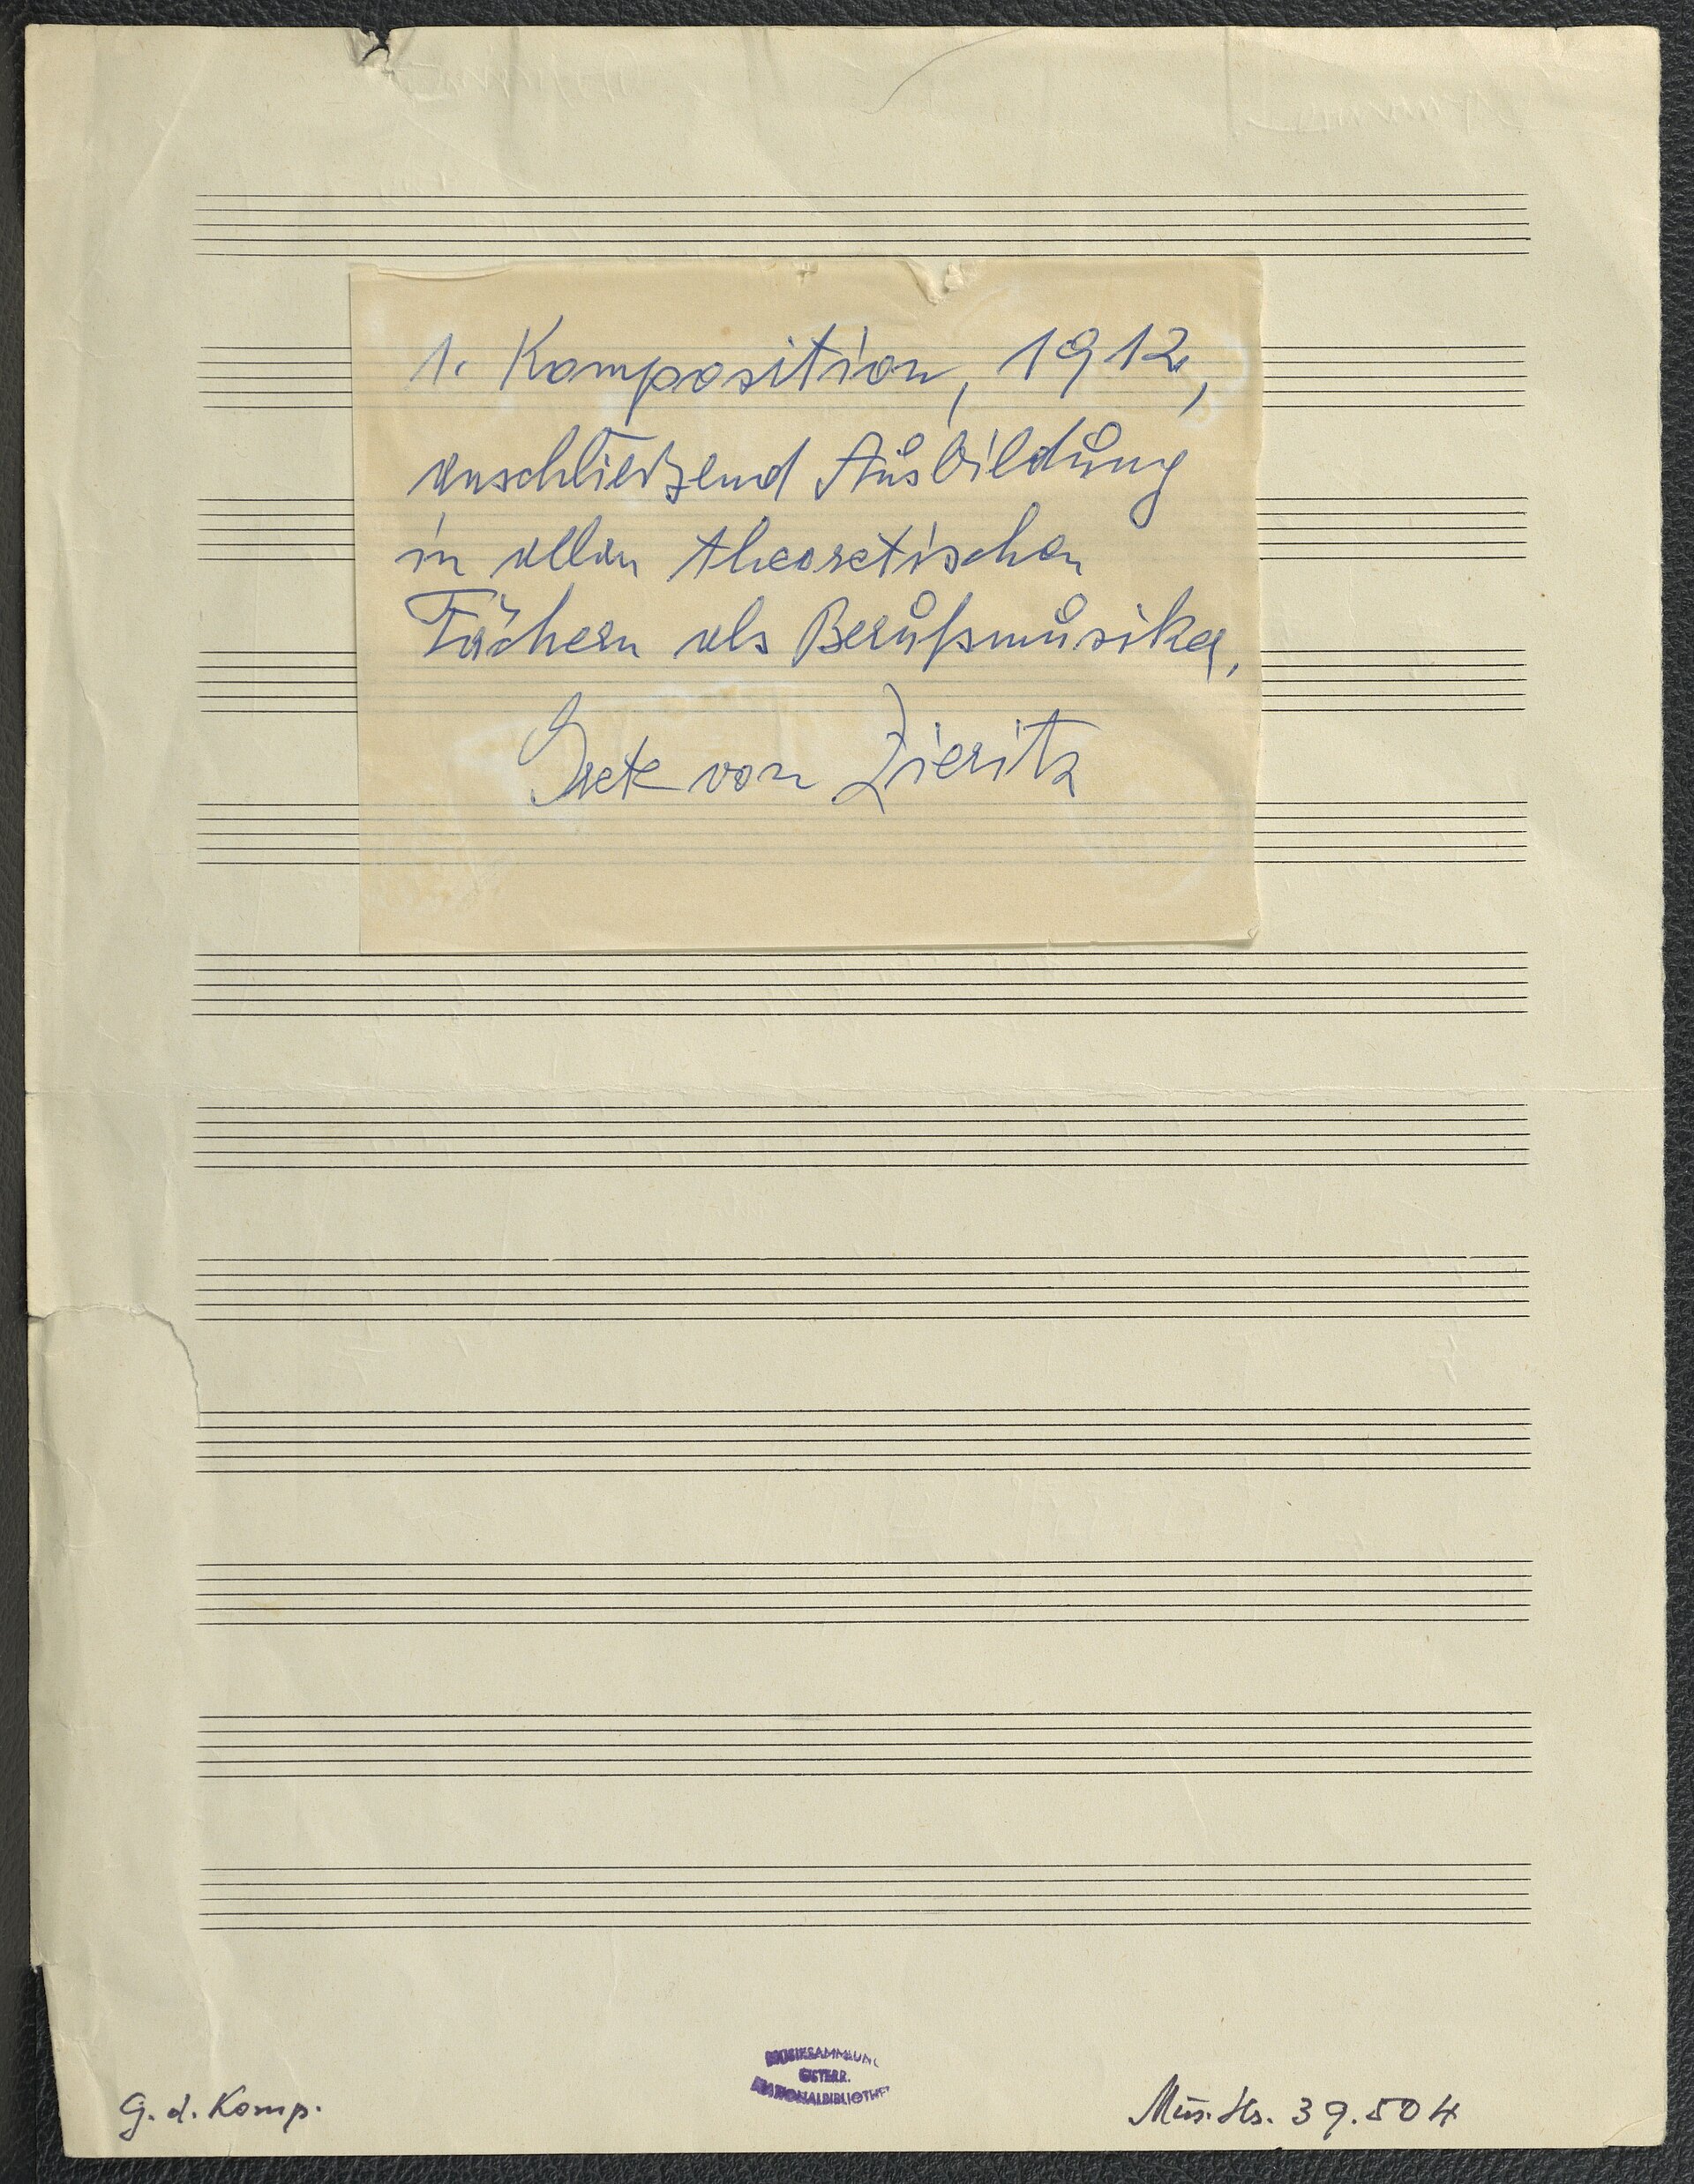 1. Komposition, 1912,
anschließend Ausbildung
in allen theoretischen
Fächern als Berufsmusiker,
Grete von Zieritz
MUSIKSAMMLUNG
ÖSTERR.
NATIONALBIBLIOTHEK
G. d. Komp.
Mus. Hs. 39.504